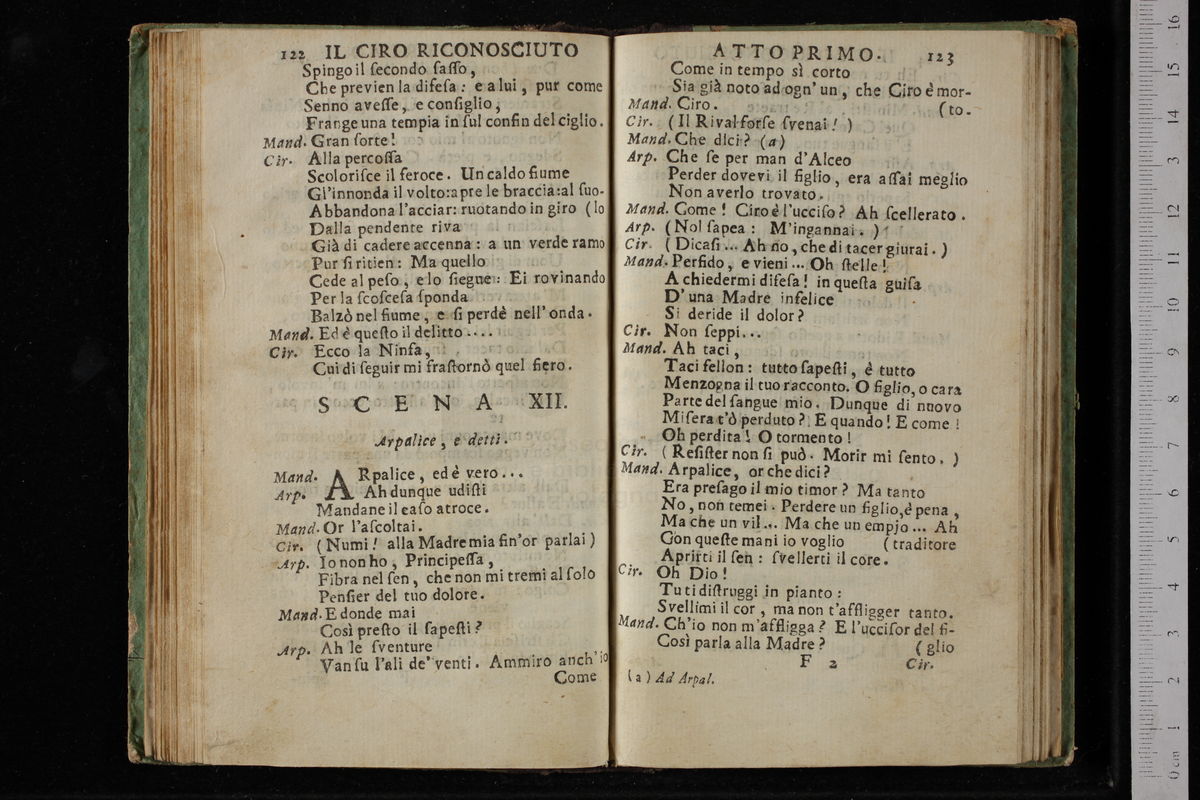 122 IL CIRO RICONOSCIUTO
Spingo il ſecondo ſaſſo,
Che previen la difeſa: e a lui, pur come
Senno aveſſe, e conſiglio,
Frange una tempia in ſul confin del ciglio.
Mand. Gran ſorte!
Cir. Alla percoſſa
Scoloriſce il feroce. Un caldo fiume
Gl'innonda il volto: apre le braccia: al ſuo-
Abbandona l'acciar: ruotando in giro (lo
Dalla pendente riva
Già di cadere accenna: a un verde ramo
Pur ſi ritien: Ma quello
Cede al peſo, e lo ſiegue: Ei rovinando
Per la ſcoſceſa ſponda
Balzò nel fiume, e ſi perdè nell'onda.
Mand. Ed è queſto il delitto....
Cir. Ecco la Ninfa,
Cui di ſeguir mi fraſtornò quel fiero.
SCENA XII.
Arpalice, e detti.
Mand. ARpalice, ed è vero...
Arp. Ah dunque udiſti
Mandane il caſo atroce.
Mand. Or l'aſcoltai.
Cir. (Numi! alla Madre mia fin'or parlai)
Arp. Io non ho, Principeſſa,
Fibra nel ſen, che non mi tremi al ſolo
Penſier del tuo dolore.
Mand. E donde mai
Così preſto il ſapeſti?
Arp. Ah le ſventure
Van ſu l'ali de' venti. Ammiro anch'io
Come
ATTO PRIMO. 123
Come in tempo sì corto
Sia già noto ad ogn'un, che Ciro è mor-
Mand. Ciro. (to.
Cir. (Il Rival forſe ſvenai!)
Mand. Che dici? (a)
Arp. Che ſe per man d'Alceo
Perder dovevi il figlio, era aſſai meglio
Non averlo trovato.
Mand. Come! Ciro è l'ucciſo? Ah ſcellerato.
Arp. (Nol ſapea: M'ingannai.)
Cir. (Dicaſi... Ah no, che di tacer giurai.)
Mand. Perfido, e vieni... Oh ſtelle!
A chiedermi difeſa! in queſta guiſa
D'una Madre infelice
Si deride il dolor?
Cir. Non ſeppi...
Mand. Ah taci,
Taci fellon: tutto ſapeſti, è tutto
Menzogna il tuo racconto. O figlio, o cara
Parte del ſangue mio. Dunque di nuovo
Miſera t'ò perduto? E quando! E come!
Oh perdita! O tormento!
Cir. (Reſiſter non ſi può. Morir mi ſento.)
Mand. Arpalice, or che dici?
Era preſago il mio timor? Ma tanto
No, non temei. Perdere un figlio, è pena,
Ma che un vil... Ma che un empio... Ah
Con queſte mani io voglio (traditore
Aprirti il ſen: ſvellerti il core.
Cir. Oh Dio!
Tu ti diſtruggi in pianto:
Svellimi il cor, ma non t'affligger tanto.
Mand. Ch'io non m'affligga? E l'ucciſor del fi-
Così parla alla Madre? (glio
F 2 Cir.
(a) Ad Arpal.